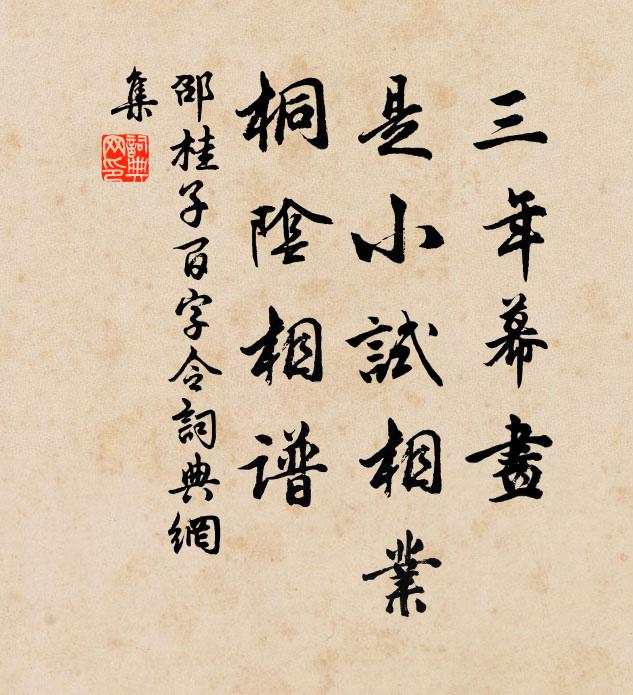 三年幕畫
是小試相業
桐陰相譜
邵桂子百字令詞典網
集
詞典
网印